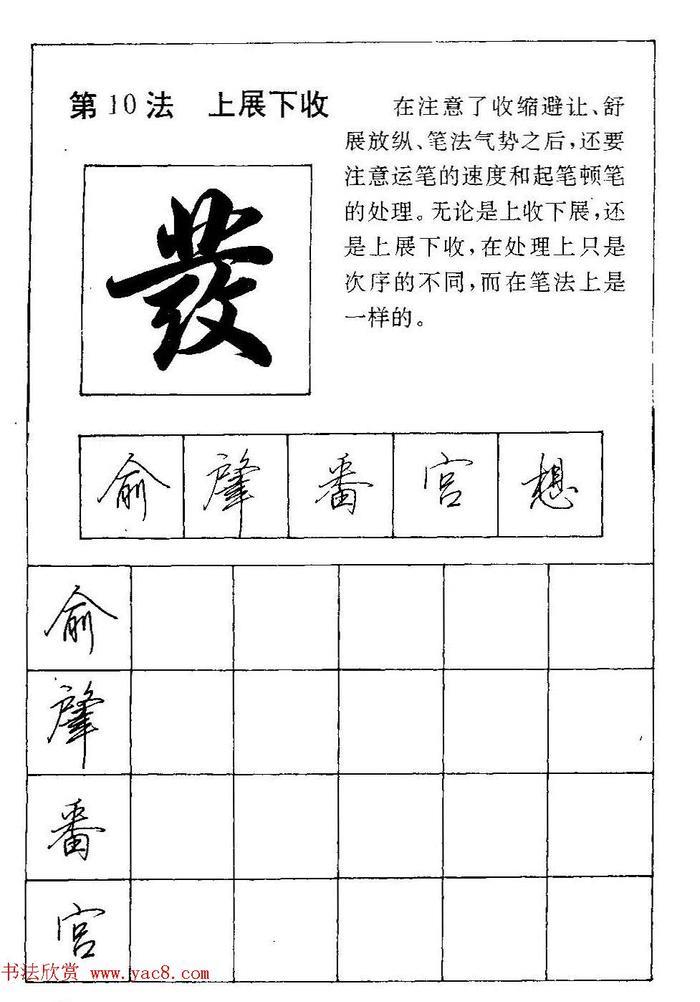 第10法 上展下收
在注意了收缩避让、舒
展放纵、笔法气势之后,还要
注意运笔的速度和起笔顿笔
的处理。无论是上收下展,还
是上展下收,在处理上只是
次序的不同,而在笔法上是
一样的。
發
俞 肇 番 宫 想
俞
肇
番
宫
书法欣赏 www.yac8.com